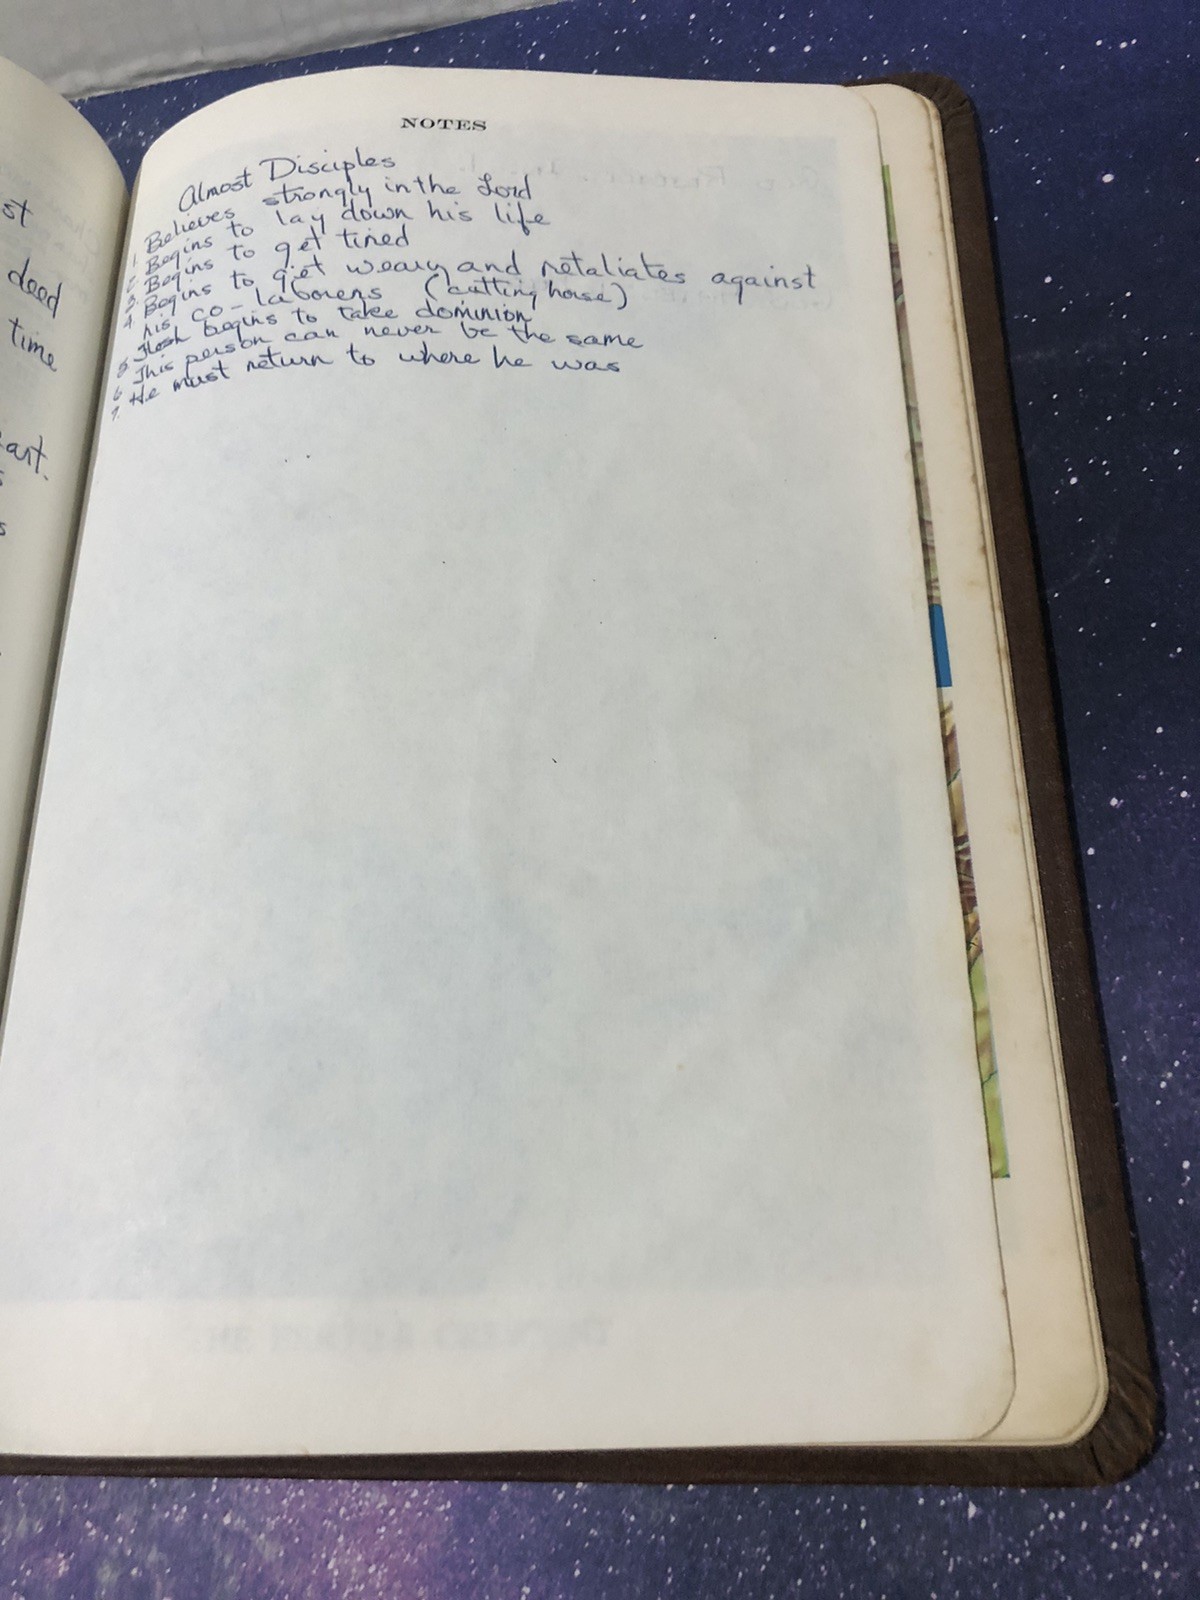 st
deed
time
art.
s
s
NOTES
Almost Disciples
1. Believes strongly in the Lord
2. Begins to lay down his life
3. Begins to get tired
4. Begins to get weary and retaliates against
his co-laborers (cutting horse)
5. Flesh begins to take dominion
6. This person can never be the same
7. He must return to where he was